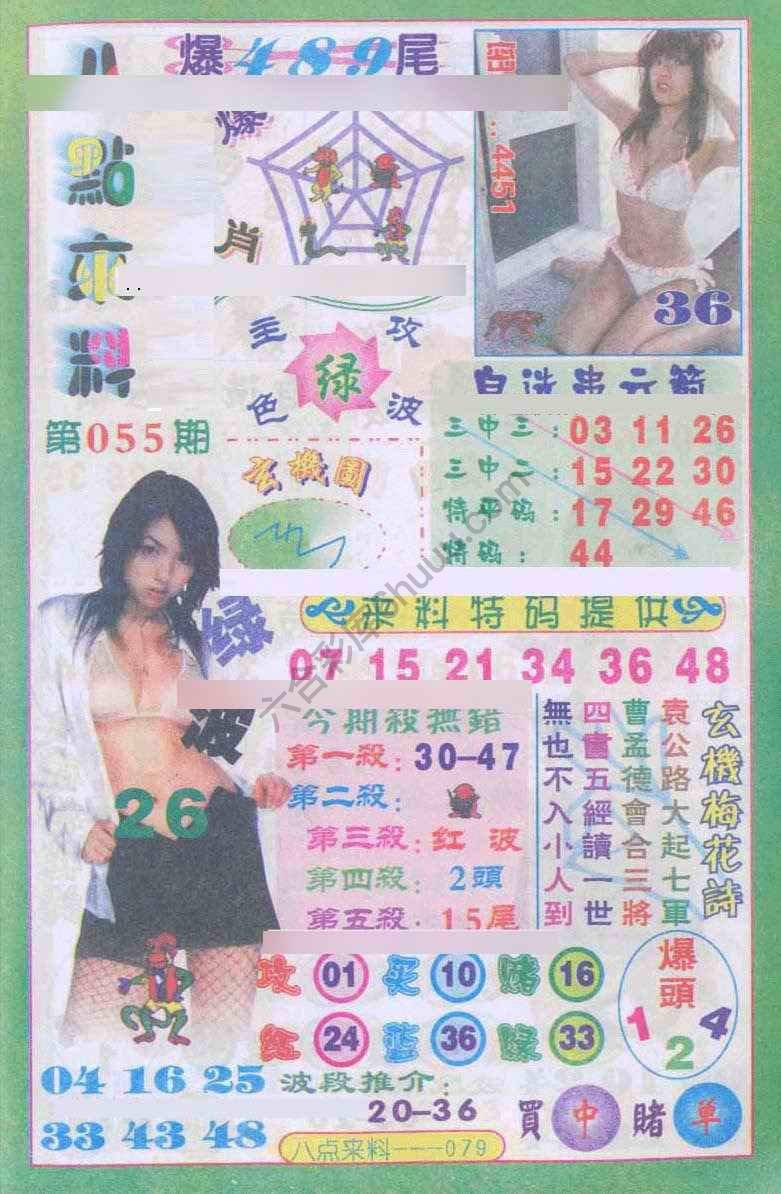 爆489尾
點來料
爆肖
4451
36
主攻
绿
色波
第055期
玄機圖
三中三：03 11 26
三中二：15 22 30
特平码：17 29 46
特码：44
来料特码提供
07 15 21 34 36 48
绿波
26
今期殺撫錯
第一殺：30-47
第二殺：
第三殺：红波
第四殺：2頭
第五殺：15尾
玄機梅花詩
袁公路大起七軍
曹孟德會合三將
四書五經讀一世
無也不入小人到
攻 01 买 10 赌 16
红 24 蓝 36 绿 33
爆頭
1 2 4
04 16 25
33 43 48
波段推介：
20-36
買中賭单
八点来料---079
六合彩库6huuu.com